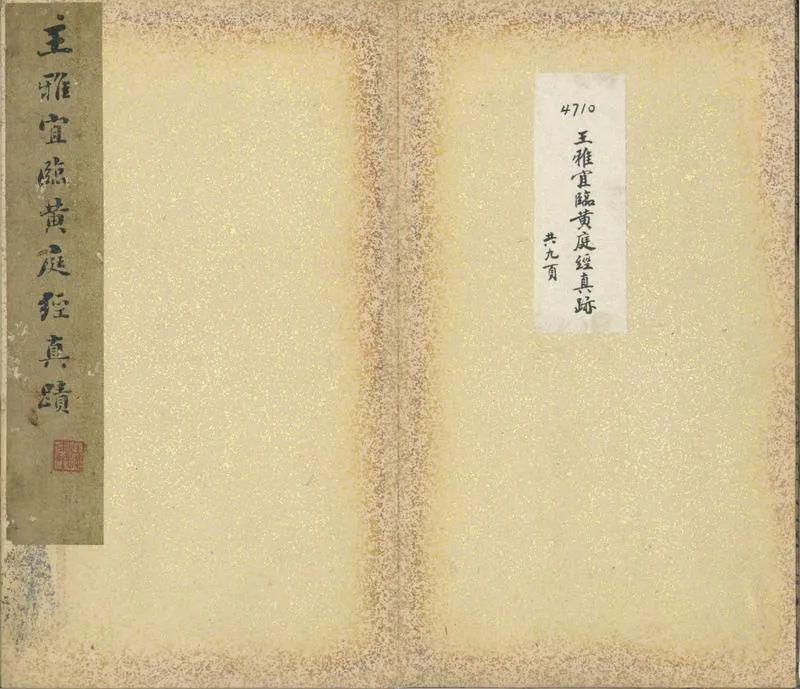 4710
王雅宜臨黄庭經真跡
共九頁
王雅宜臨黄庭經真蹟